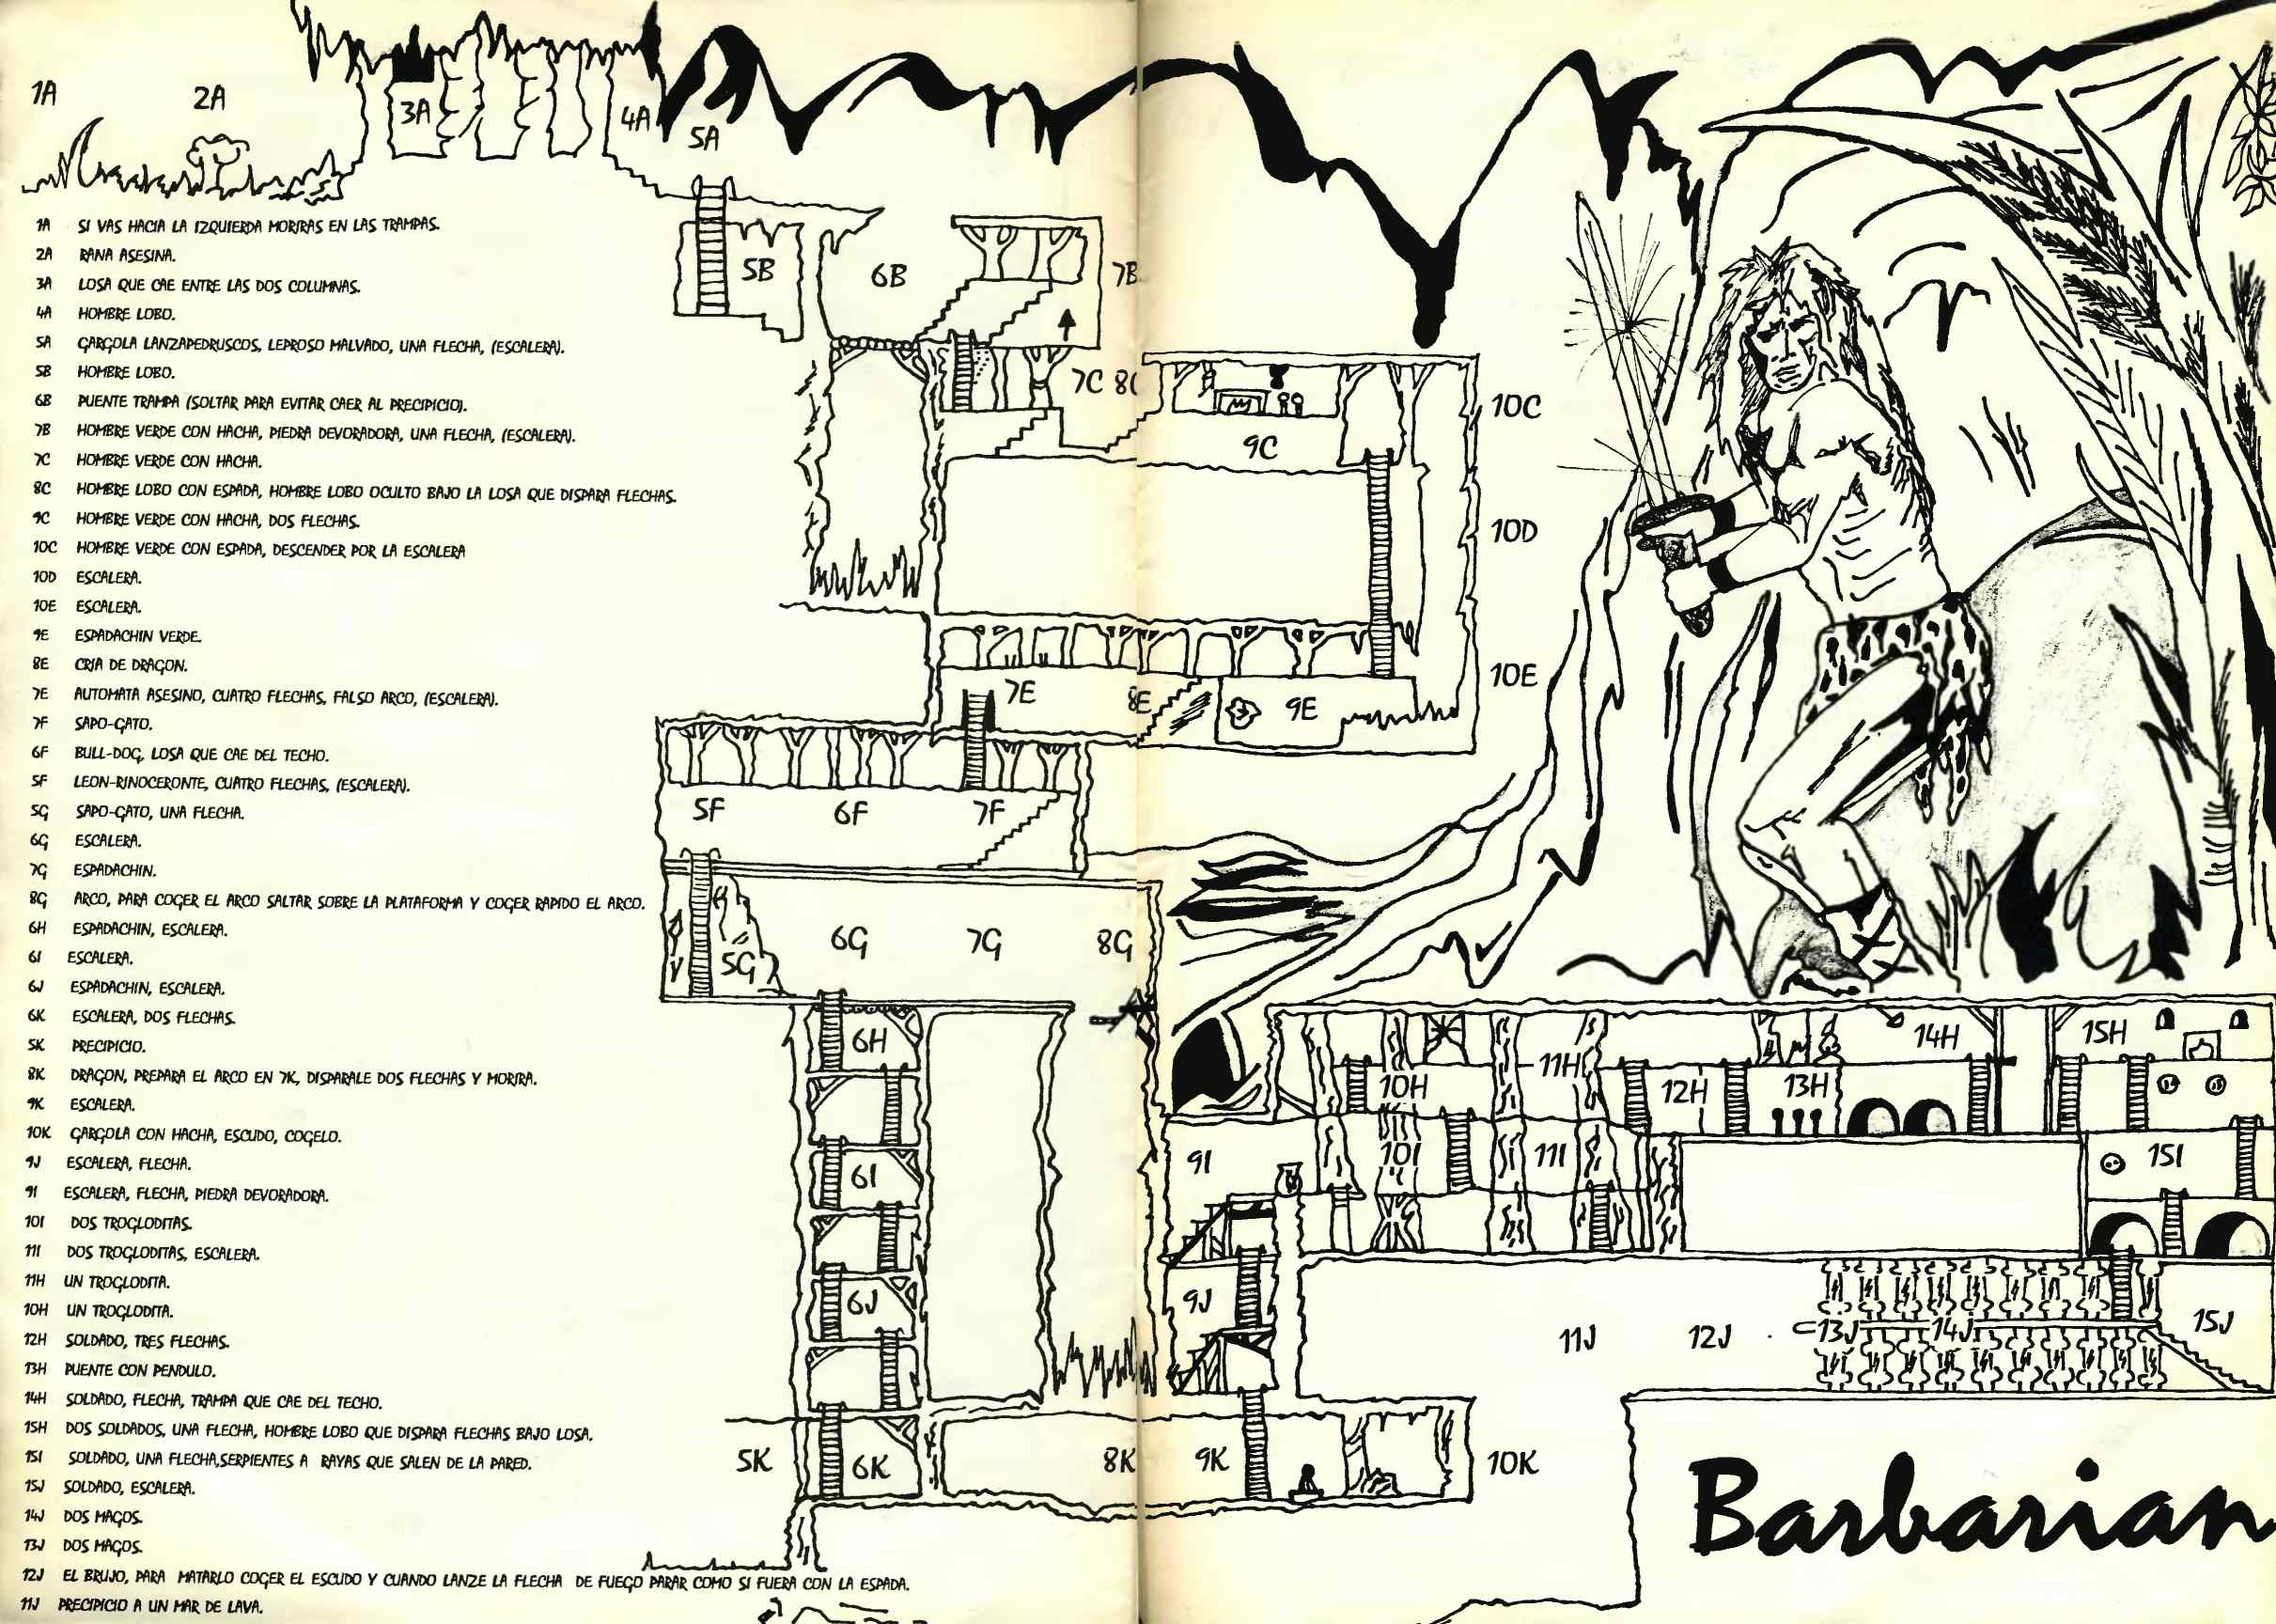 1A
2A
3A
4A
5A
1A SI VAS HACIA LA IZQUIERDA MORIRAS EN LAS TRAMPAS.
2A RANA ASESINA.
3A LOSA QUE CAE ENTRE LAS DOS COLUMNAS.
4A HOMBRE LOBO.
5A GARGOLA LANZAPEDRUSCOS, LEPROSO MALVADO, UNA FLECHA, (ESCALERA).
5B HOMBRE LOBO.
6B PUENTE TRAMPA (SOLTAR PARA EVITAR CAER AL PRECIPICIO).
7B HOMBRE VERDE CON HACHA, PIEDRA DEVORADORA, UNA FLECHA, (ESCALERA).
7C HOMBRE VERDE CON HACHA.
8C HOMBRE LOBO CON ESPADA, HOMBRE LOBO OCULTO BAJO LA LOSA QUE DISPARA FLECHAS.
9C HOMBRE VERDE CON HACHA, DOS FLECHAS.
10C HOMBRE VERDE CON ESPADA, DESCENDER POR LA ESCALERA
10D ESCALERA.
10E ESCALERA.
9E ESPADACHIN VERDE.
8E CRIA DE DRAGON.
7E AUTOMATA ASESINO, CUATRO FLECHAS, FALSO ARCO, (ESCALERA).
7F SAPO-GATO.
6F BULL-DOG, LOSA QUE CAE DEL TECHO.
5F LEON-RINOCERONTE, CUATRO FLECHAS, (ESCALERA).
5G SAPO-GATO, UNA FLECHA.
6G ESCALERA.
7G ESPADACHIN.
8G ARCO, PARA COGER EL ARCO SALTAR SOBRE LA PLATAFORMA Y COGER RAPIDO EL ARCO.
6H ESPADACHIN, ESCALERA.
6I ESCALERA.
6J ESPADACHIN, ESCALERA.
6K ESCALERA, DOS FLECHAS.
5K PRECIPICIO.
8K DRAGON, PREPARA EL ARCO EN 7K, DISPARALE DOS FLECHAS Y MORIRA.
9K ESCALERA.
10K GARGOLA CON HACHA, ESCUDO, COGELO.
9J ESCALERA, FLECHA.
9I ESCALERA, FLECHA, PIEDRA DEVORADORA.
10I DOS TROGLODITAS.
11I DOS TROGLODITAS, ESCALERA.
11H UN TROGLODITA.
10H UN TROGLODITA.
12H SOLDADO, TRES FLECHAS.
13H PUENTE CON PENDULO.
14H SOLDADO, FLECHA, TRAMPA QUE CAE DEL TECHO.
15H DOS SOLDADOS, UNA FLECHA, HOMBRE LOBO QUE DISPARA FLECHAS BAJO LOSA.
15I SOLDADO, UNA FLECHA,SERPIENTES A RAYAS QUE SALEN DE LA PARED.
15J SOLDADO, ESCALERA.
14J DOS MAGOS.
13J DOS MAGOS.
12J EL BRUJO, PARA MATARLO COGER EL ESCUDO Y CUANDO LANZE LA FLECHA DE FUEGO PARAR COMO SI FUERA CON LA ESPADA.
11J PRECIPICIO A UN MAR DE LAVA.
5B
6B
7B
7C
8C
9C
10C
10D
10E
7E
8E
9E
5F
6F
7F
5G
6G
7G
8G
6H
6I
6J
5K
6K
8K
9K
10K
10H
11H
12H
13H
14H
15H
9I
10I
11I
15I
9J
11J
12J
13J
14J
15J
Barbarian